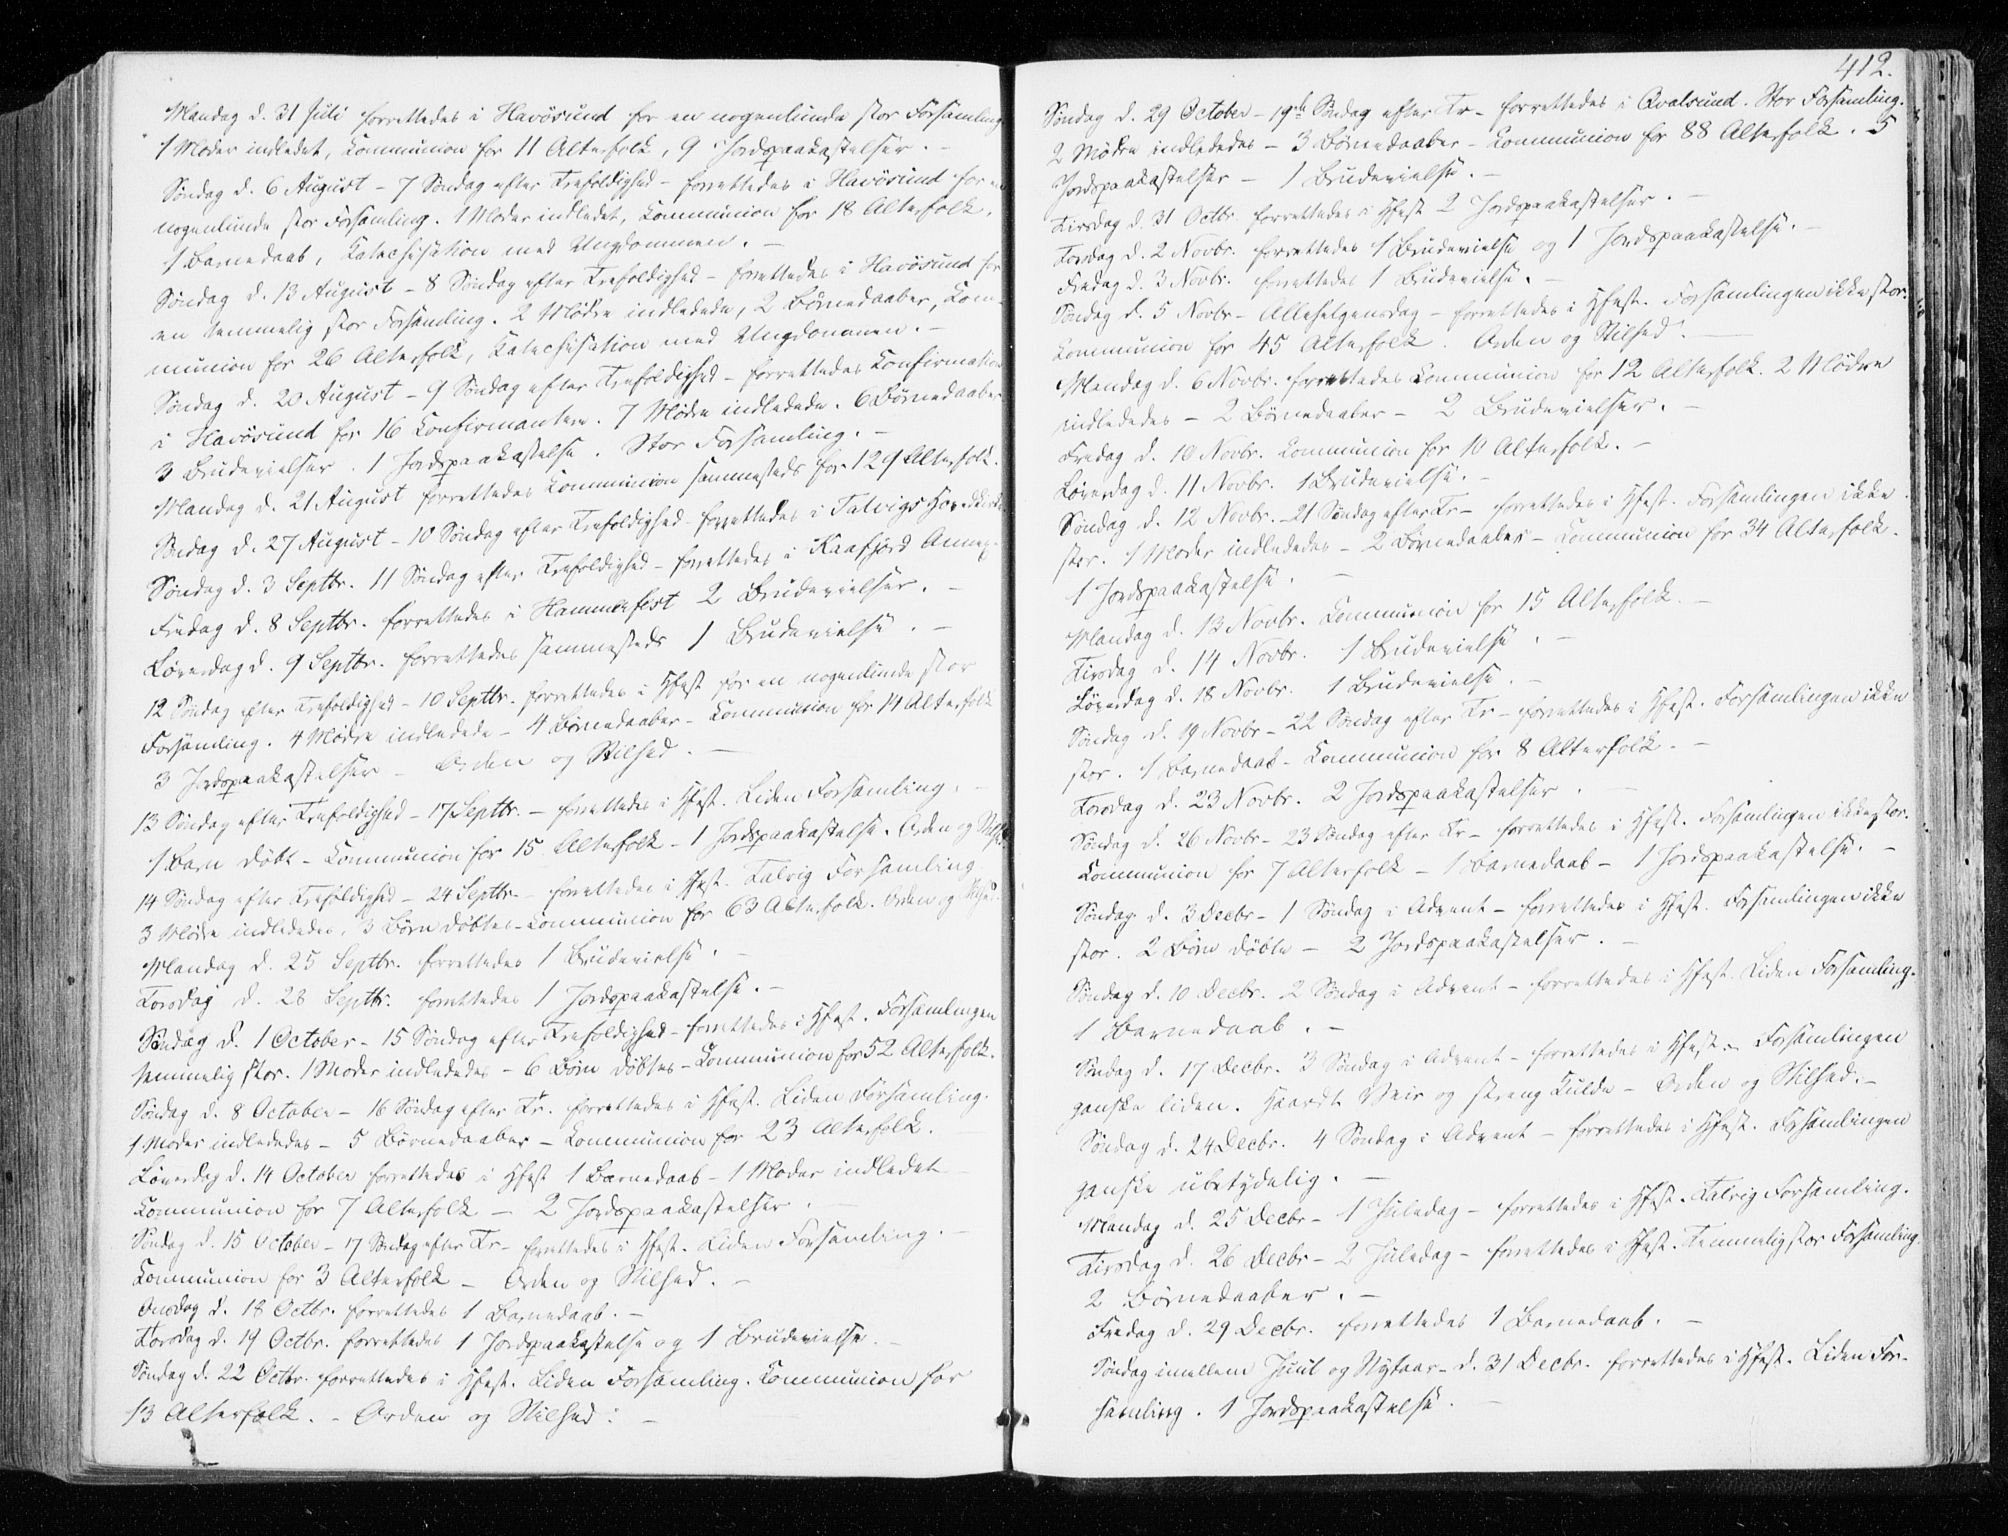 Mandag d. 31 Juli forrettedes i Havösund for en nogenlunde stor Forsamling
1 Moder indledet, Communion for 11 Alterfolk, 9 Jordspaakastelser. –
Søndag d. 6 August – 7 Søndag efter Trefoldighed – forrettedes i Havösund for en
nogenlunde stor Forsamling. 1 Moder indledet, Communion for 18 Alterfolk,
1 Barnedaab, Katechisation med Ungdommen. –
Søndag d. 13 August – 8 Søndag efter Trefoldighed – forrettedes i Havösund for
en temmelig stor Forsamling. 2 Mødre indledede, 2 Børnedaaber, Com-
munion for 26 Alterfolk, Katechisation med Ungdommen. –
Søndag d. 20 August – 9 Søndag efter Trefoldighed – forrettedes Confirmation
i Havösund for 16 Confirmantere. 7 Mødre indledede. 6 Børnedaaber
3 Brudevielser. 1 Jordspaakastelse. Stor Forsamling. –
Mandag d. 21 August forrettedes Communion sammesteds for 129 Alterfolk.
Søndag d. 27 August – 10 Søndag efter Trefoldighed – forrettedes i Talvigs Hovedkirke
Søndag d. 3 Septbr. 11 Søndag efter Trefoldighed – forrettedes i Kaafjord Annex.
Fredag d. 8 Septbr. forrettedes i Hammerfest 2 Brudevielser. –
Løverdag d. 9 Septbr. forrettedes sammesteds 1 Brudevielse. –
12 Søndag efter Trefoldighed – 10 Septbr. forrettedes i Hfest for en nogenlunde stor
Forsamling. 4 Mødre indledede – 4 Børnedaaber – Communion for 14 Alterfolk
3 Jordspaakastelser – Orden og Stilhed. –
13 Søndag efter Trefoldighed – 17 Septbr. – forrettedes i Hfest. Liden Forsamling. –
1 Barn døbt – Communion for 15 Alterfolk – 1 Jordspaakastelse. Orden og Stilh.
14 Søndag efter Trefoldighed – 24 Septbr. – forrettedes i Hfest. Talrig Forsamling
3 Mødre indledede, 3 Børn døbtes – Communion for 63 Alterfolk. Orden og Stilhed.
Mandag d. 25 Septbr. forrettedes 1 Brudevielse. –
Torsdag d. 28 Septbr. forrettedes 1 Jordspaakastelse. –
Søndag d. 1 October – 15 Søndag efter Trefoldighed – forrettedes i Hfest. Forsamlingen
temmelig stor. 1 Moder indlededes – 6 Børn døbtes – Communion for 52 Alterfolk.
Søndag d. 8 October – 16 Søndag efter Tr. forrettedes i Hfest. Liden Forsamling.
1 Moder indlededes – 5 Børnedaaber – Communion for 23 Alterfolk. –
Løverdag d. 14 October forrettedes i Hfest 1 Barnedaab – 1 Moder indledet
Communion for 7 Alterfolk – 2 Jordspaakastelser. –
Søndag d. 15 October – 17 Søndag efter Tr – forrettedes i Hfest. Liden Forsamling. –
Communion for 3 Alterfolk – Orden og Stilhed. –
Onsdag d. 18 Octbr. forrettedes 1 Barnedaab. –
Torsdag d. 19 Octbr. forrettedes 1 Jordspaakastelse og 1 Brudevielse. –
Søndag d. 22 Octbr. forrettedes i Hfest. Liden Forsamling. Communion for
13 Alterfolk. – Orden og Stilhed. –
412.
Søndag d. 29 October – 19de Søndag efter Tr – forrettedes i Qvalsund. Stor Forsamling.
2 Mødre indlededes – 3 Børnedaaber – Communion for 88 Alterfolk. 5
Jordspaakastelser – 1 Brudevielse. –
Tirsdag d. 31 Octbr. forrettedes i Hfest 2 Jordspaakastelser. –
Torsdag d. 2 Novbr. forrettedes 1 Brudevielse og 1 Jordspaakastelse. –
Fredag d. 3 Novbr. forrettedes 1 Brudevielse. –
Søndag d. 5 Novbr – Allehelgensdag – forrettedes i Hfest. Forsamlingen ikke stor.
Communion for 45 Alterfolk. Orden og Stilhed. –
Mandag d. 6 Novbr. forrettedes Communion for 12 Alterfolk. 2 Mødre
indlededes – 2 Børnedaaber – 2 Brudevielser. –
Fredag d. 10 Novbr. Communion for 10 Alterfolk. –
Løverdag d. 11 Novbr. 1 Brudevielse. –
Søndag d. 12 Novbr. – 21 Søndag efter Tr – forrettedes i Hfest. Forsamlingen ikke
stor. 1 Moder indlededes – 2 Børnedaaber – Communion for 34 Alterfolk.
1 Jordspaakastelse. –
Mandag d. 13 Novbr. Communion for 15 Alterfolk. –
Tirsdag d. 14 Novbr. 1 Brudevielse. –
Løverdag d. 18 Novbr. 1 Brudevielse. –
Søndag d. 19 Novbr – 22 Søndag efter Tr – forrettedes i Hfest. Forsamlingen ikke
stor. 1 Barnedaab – Communion for 8 Alterfolk. –
Torsdag d. 23 Novbr. 2 Jordspaakastelser. –
Søndag d. 26 Novbr – 23 Søndag efter Tr – forrettedes i Hfest. Forsamlingen ikke stor.
Communion for 7 Alterfolk – 1 Barnedaab – 1 Jordspaakastelse. –
Søndag d. 3 Decbr – 1 Søndag i Advent – forrettedes i Hfest. Forsamlingen ikke
stor. 2 Børn døbte – 2 Jordspaakastelser. –
Søndag d. 10 Decbr. 2 Søndag i Advent – forrettedes i Hfest. Liden Forsamling.
1 Barnedaab. –
Søndag d. 17 Decbr. 3 Søndag i Advent – forrettedes i Hfest. – Forsamlingen
ganske liden. Haardt Veir og streng Kulde – Orden og Stilhed. –
Søndag d. 24 Decbr. 4 Søndag i Advent – forrettedes i Hfest. Forsamlingen
ganske ubetydelig. –
Mandag d. 25 Decbr – 1 Juledag – forrettedes i Hfest. Talrig Forsamling.
Tirsdag d. 26 Decbr – 2 Juledag – forrettedes i Hfest. Temmelig stor Forsamling.
2 Børnedaaber. –
Fredag d. 29 Decbr. forrettedes 1 Barnedaab. –
Søndag imellem Juul og Nytaar – d. 31 Decbr. forrettedes i Hfest. Liden For-
samling. 1 Jordspaakastelse. –